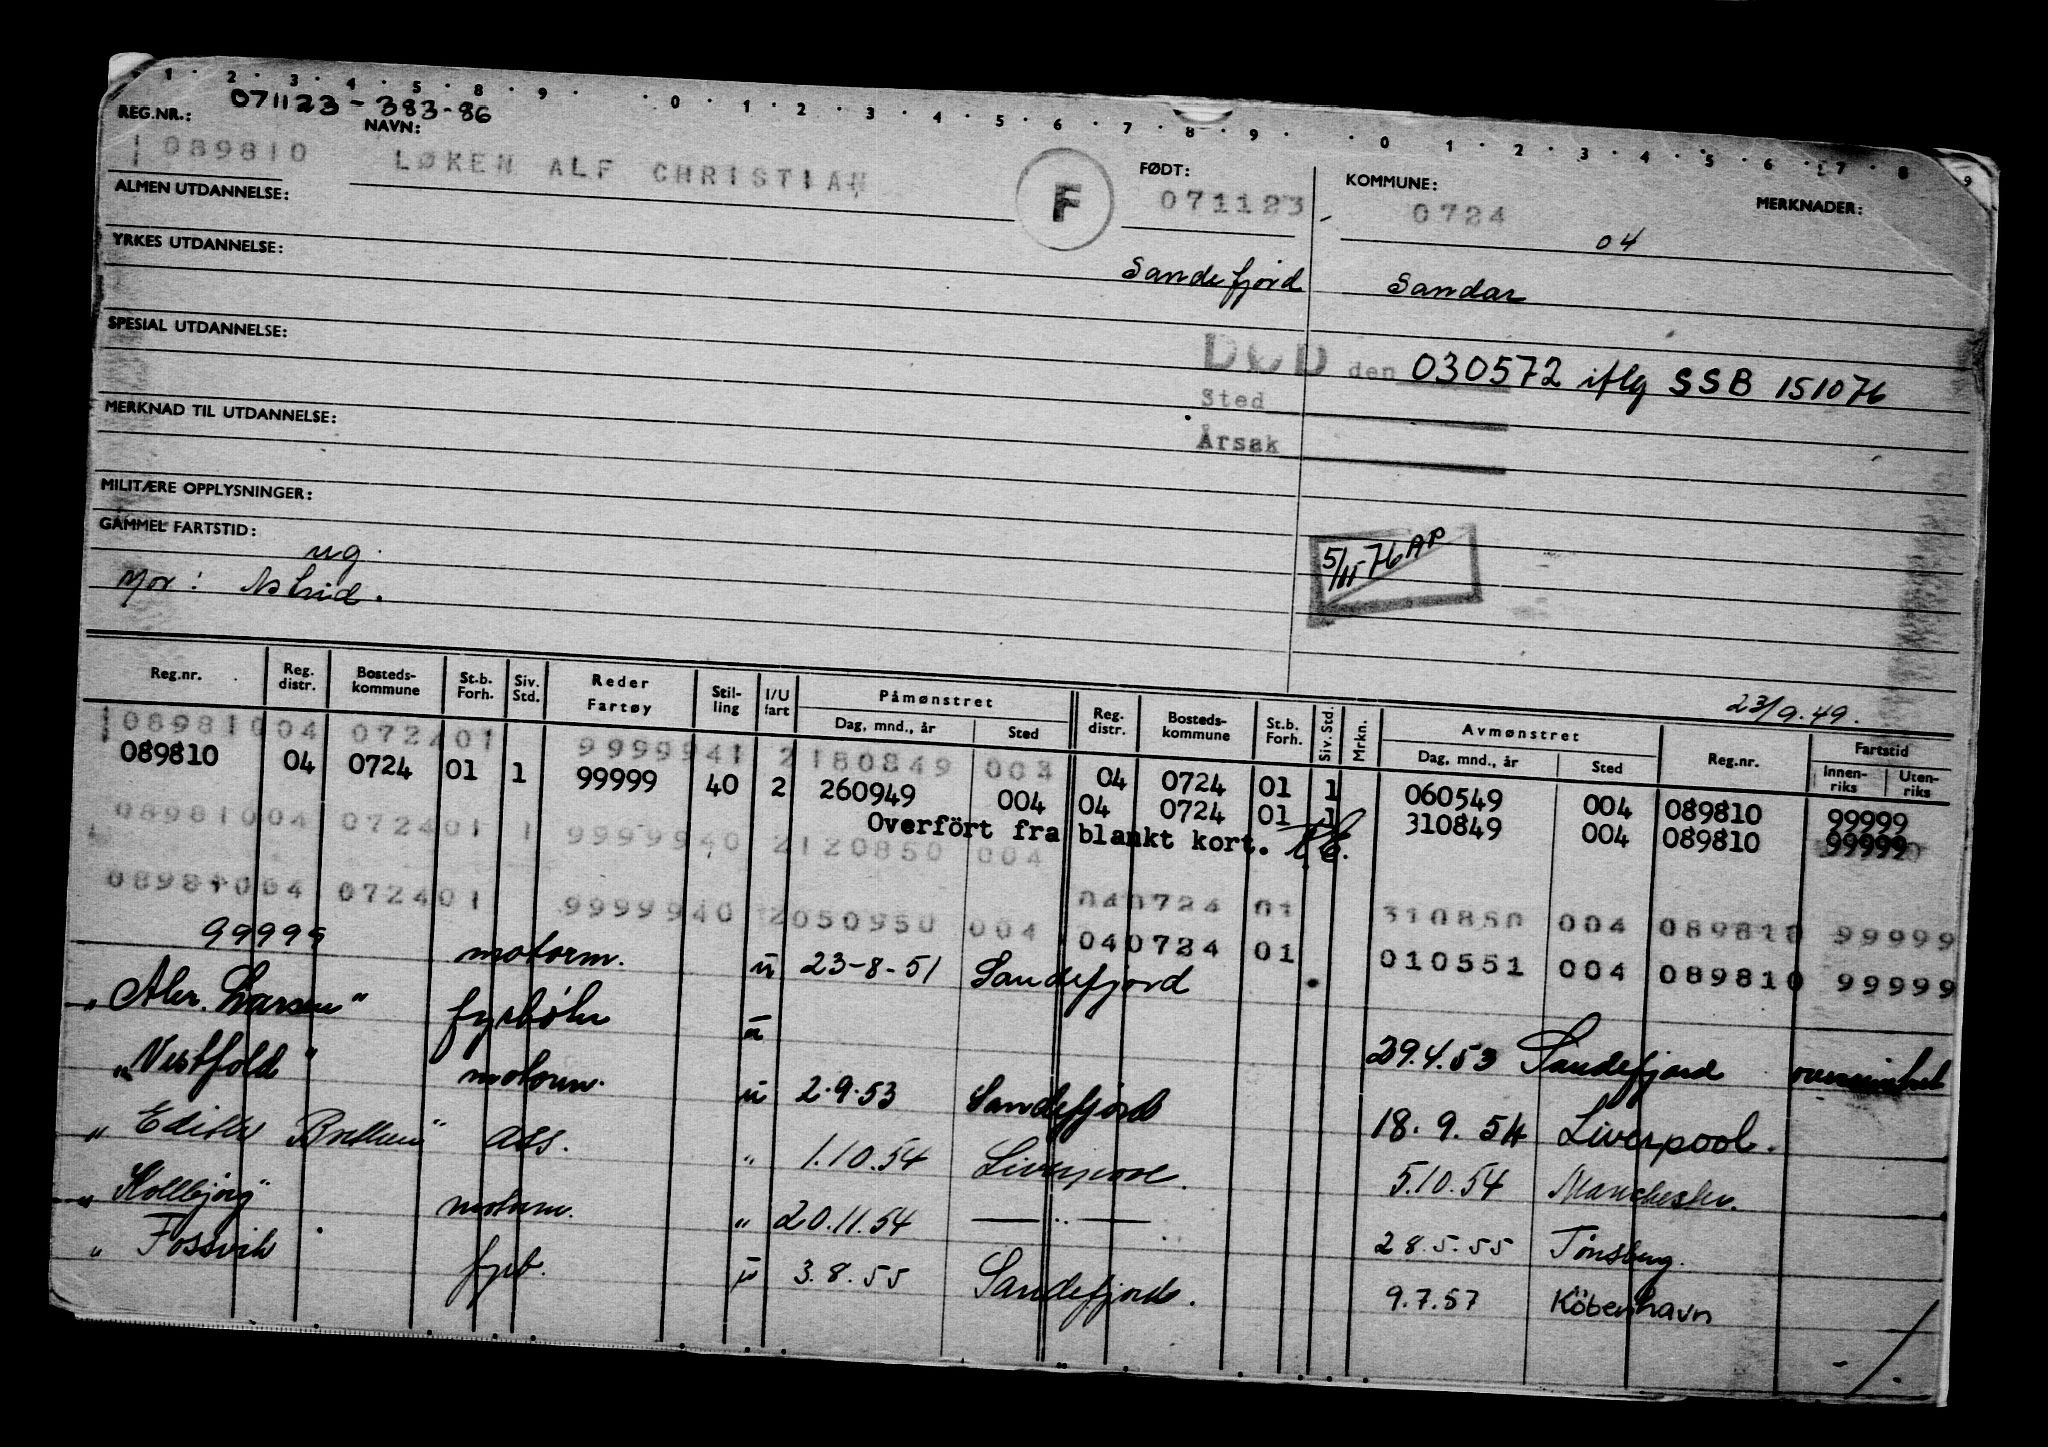 1 . 2 . 3 . 4 . 5 . 8 . 9 . . 0 . 1 . 2 . 3 . 4 . 5 . 6 . 7 . 8 . 9 . . 0 . 1 . 2 . 3 . 4 . 5 . 6 . 7 . 8 . 9
REG.NR.: 071123-383-86 NAVN:
089810 LØKEN ALF CHRISTIAN F FØDT: 071123 KOMMUNE: 0724 04 MERKNADER:
ALMEN UTDANNELSE:
YRKES UTDANNELSE: Sandefjord Sandar
SPESIAL UTDANNELSE:
DØD den 030572 iflg SSB 151076
Sted
MERKNAD TIL UTDANNELSE:
Årsak
MILITÆRE OPPLYSNINGER:
GAMMEL FARTSTID:
ug. 5/11-76 AP
Mor: Astrid.
23/9.49.
Reg.nr. Reg. distr. Bosteds-kommune St.b. Forh. Siv. Std. Reder Fartøy Stil-ling I/U fart Påmønstret Dag, mnd., år Sted Reg. distr. Bosteds-kommune St.b. Forh. Siv. Std. Mrkn. Avmønstret Dag, mnd., år Sted Reg.nr. Fartstid Innen-riks Uten-riks
089810 04 0724 01 99999 41 2 180849 004 04 0724 01 1 060549 004 089810 99999
089810 04 0724 01 1 99999 40 2 260949 004 04 0724 01 1 310849 004 089810 99999
Overfört fra blankt kort.
089810 04 0724 01 1 99999 40 2 120850 004 04 0724 01 310850 004 089810 99999
089810 04 0724 01 99999 40 2 050950 004 04 0724 01 010551 004 089810 99999
99999 motorm. u 23-8-51 Sandefjord
"Aler. Larsen" fyrbøter u 29.4.53 Sandefjord
"Vestfold" motorm. u 2.9.53 Sandefjord 18.9.54 Liverpool.
"Edith" ass. " 1.10.54 Liverpool. 5.10.54 Manchester.
"Kollbjørg" motorm. " 20.11.54 —"— 28.5.55 Tønsberg.
" Fossvik fyrb. u 3.8.55 Sandefjord. 9.7.57 Köbenhavn